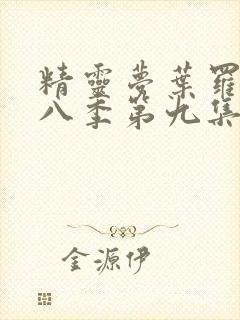 精靈夢葉羅
八季第九集
金源伊